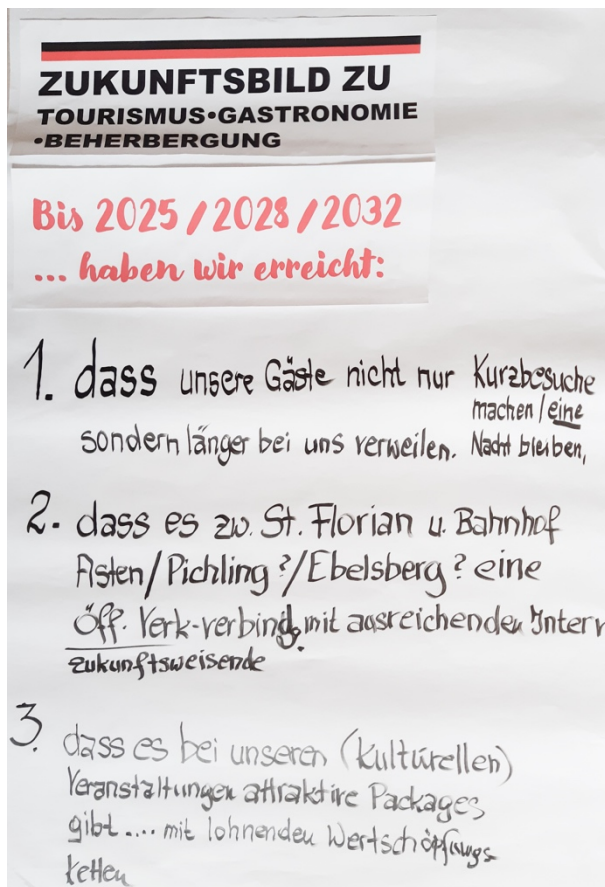 ZUKUNFTSBILD ZU
TOURISMUS•GASTRONOMIE
•BEHERBERGUNG
Bis 2025/2028/2032
... haben wir erreicht:
1. dass unsere Gäste nicht nur Kurzbesuche
machen/eine
sondern länger bei uns verweilen. Nacht bleiben,
2. dass es zw. St. Florian u. Bahnhof
Asten/Pichling?/Ebelsberg? eine
Öff. Verk-verbindg. mit ausreichenden Interv
zukunftsweisende
3. dass es bei unseren (kulturellen)
Veranstaltungen attraktive Packages
gibt.... mit lohnenden Wertschöpfungs-
ketten